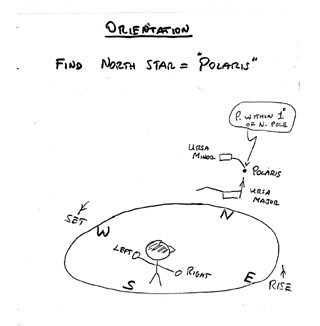 ORIENTATION
FIND NORTH STAR = "POLARIS"
P. WITHIN 1°
OF N. POLE
URSA
MINOR
POLARIS
URSA
MAJOR
SET
W
N
LEFT
RIGHT
S
E
RISE